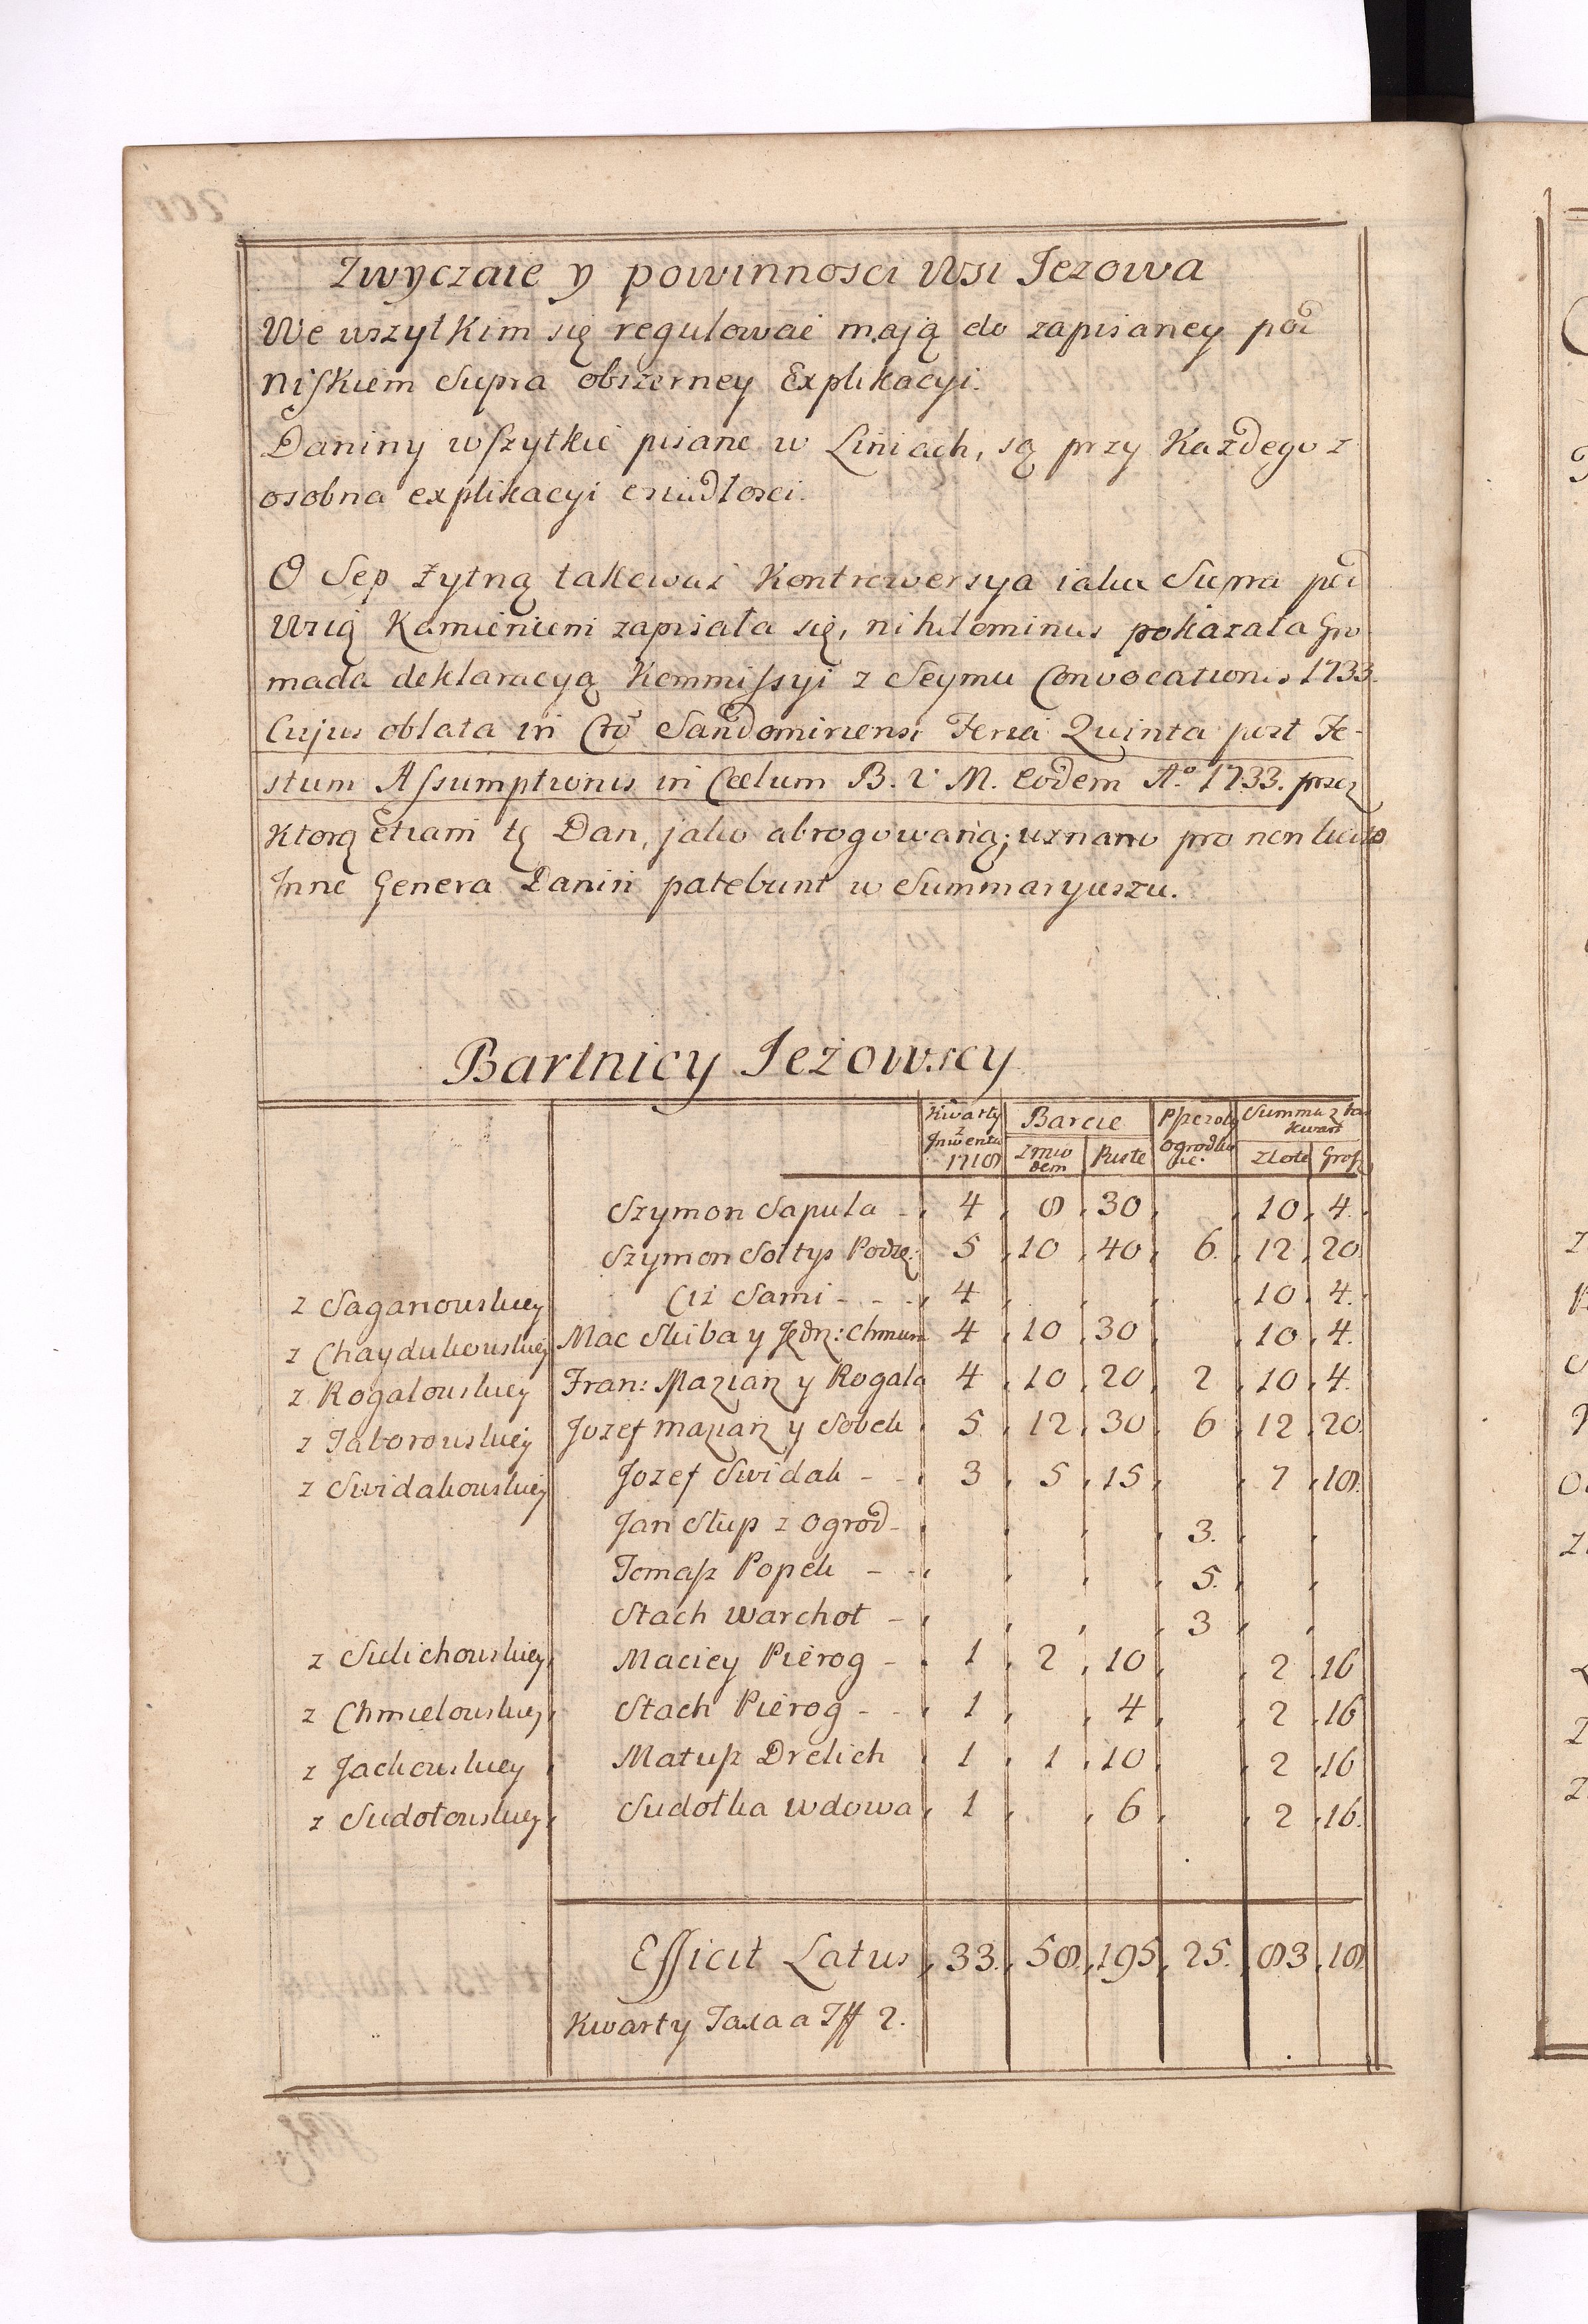 Zwyczaie y powinnosci Wsi Jezowa
We wszytkim się regulować mają do zapisaney pod
Niskiem Supra obszerney Explikacyi.
Daniny wszytkie pisane w Liniach, są przy Każdego z
osobna explikacyi osiadłosci.
O Sep żytną takoważ Kontrowersya iako Supra pod
Wsią Kamieniem zapisała się, nihilominus pokazała Gro
mada deklaracyą Kommissyi z Seymu Convocationis 1733.
Cujus oblata in Cro Sandomiriensi Feria Quinta post Fe-
stum Assumptionis in Cœlum B. V. M. Eodem A.º 1733. przez
Ktorą etiam tę Dan, jako abrogowaną; uznano pro non
Inne Genera Danin patebunt w Summaryuszu.
Bartnicy Jeżowscy
Kwarty z Inwenta 1718 Barcie Pszczoły Ogrodko we: Summa z ta Kwart
z mio dem Puste Złote Grosz
Szymon Sapula - 4 8 30 10 4.
Szymon Sołtys Podzę: 5 10 40 6. 12 20.
z Saganowskiey Ciż Sami - - - 4 10 4.
z Chaydukowskiey Mac Skiba y Jędrz: Chmura 4 10 30 10 4.
z Rogalowskiey Fran: Mazian y Rogala 4 10 20 2 10 4.
z Taborowskiey Jozef Mazian y Sobek 5 12 30 6 12 20.
z Swidakowskiey Jozef Swidak - - 3 5 15 7 18.
Jan Słup z Ogrod - 3.
Tomasz Popek - - 5.
Stach Warchoł - 3
z Sulichowskiey Maciey Pierog - 1 2 10 2 16
z Chmielowskiey Stach Pierog - - 1 4 2 16
z Jachowskiey Matusz Drelich 1 1 10 2 16
z Sudołowskiey Sudołka Wdowa 1 6 2 16.
Efficit Latus 33. 58. 195 25. 83 18
Kwarty Taxa a Tff 2.